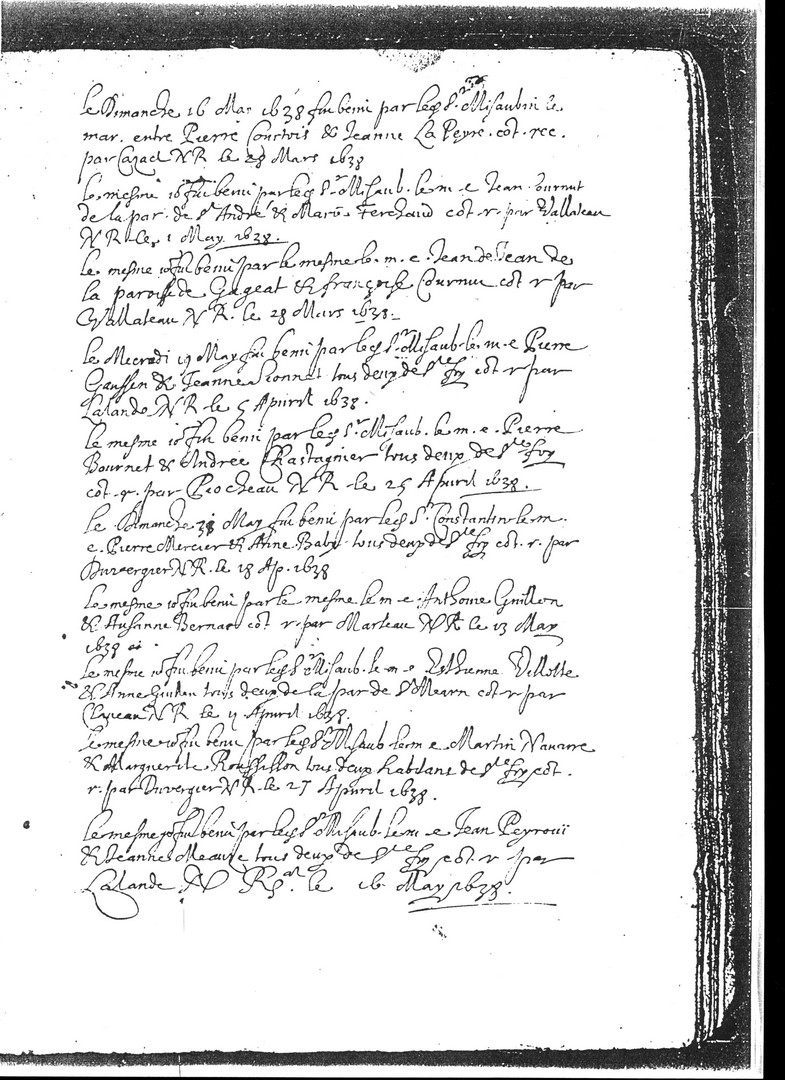 le Dimanche 16 May 1638 fut beni par led Sr Misaubin le
mar. entre Pierre Courtois & Jeanne La Peyre. cot. rec.
par Cazacl N R. le 28 Mars 1638
le mesme jo fut beni par led Sr Misaub. le m e Jean Tournut
de la par. de St André & Marie Ferchaud cot r. par Vallateau
N R le 1 May 1638.
le mesme jo fut beni par le mesme le m. e. Jean de Jean de
la paroisse de Gageat & françoise Cournut cot r par
Vallateau N R. le 28 Mars 1638.
le Mecredi 19 May fut beni par led Sr Misaub. le. m. e Pierre
Gaussen & Jeanne Sionnet tous deux de Ste foy cot r par
Lalande N R le 5 Apvril 1638.
le mesme jo fut beni par led Sr Misaub. le m. e. Pierre
Bournet & Andree Chastagnier tous deux de Ste foy
cot. r. par Rocheau N R le 25 Apvril 1638.
le Dimanche May fut beni par led Sr Constantin le m.
e. Pierre Mercier & Anne Baby tous deux de Ste foy cot. r. par
Duvergier N R. le 18 Ap. 1638
le mesme jo fut beni par le mesme le m e Anthoine Guillon
& Susanne Bernard cot r. par Marteau N R le 13 May
1638
le mesme jo fut beni par led Sr Misaub. le m e Esthienne Villotte
& Anne tous deux de la par de St Mearn cot r par
Clayeau N R le 11 Apvril 1638.
le mesme jo fut beni par led Sr Misaub le m e Martin Navarre
& Marguerite Roussillon tous deux habitans de Ste foy cot.
r. par Duvergier N R. le 27 Apvril 1638.
le mesme jo fut beni par led Sr Misaub. le m e Jean Peyrouï
& Jeanne Meaure tous deux de Ste foy cot. r par
Lalande N R le 16 May 1638.